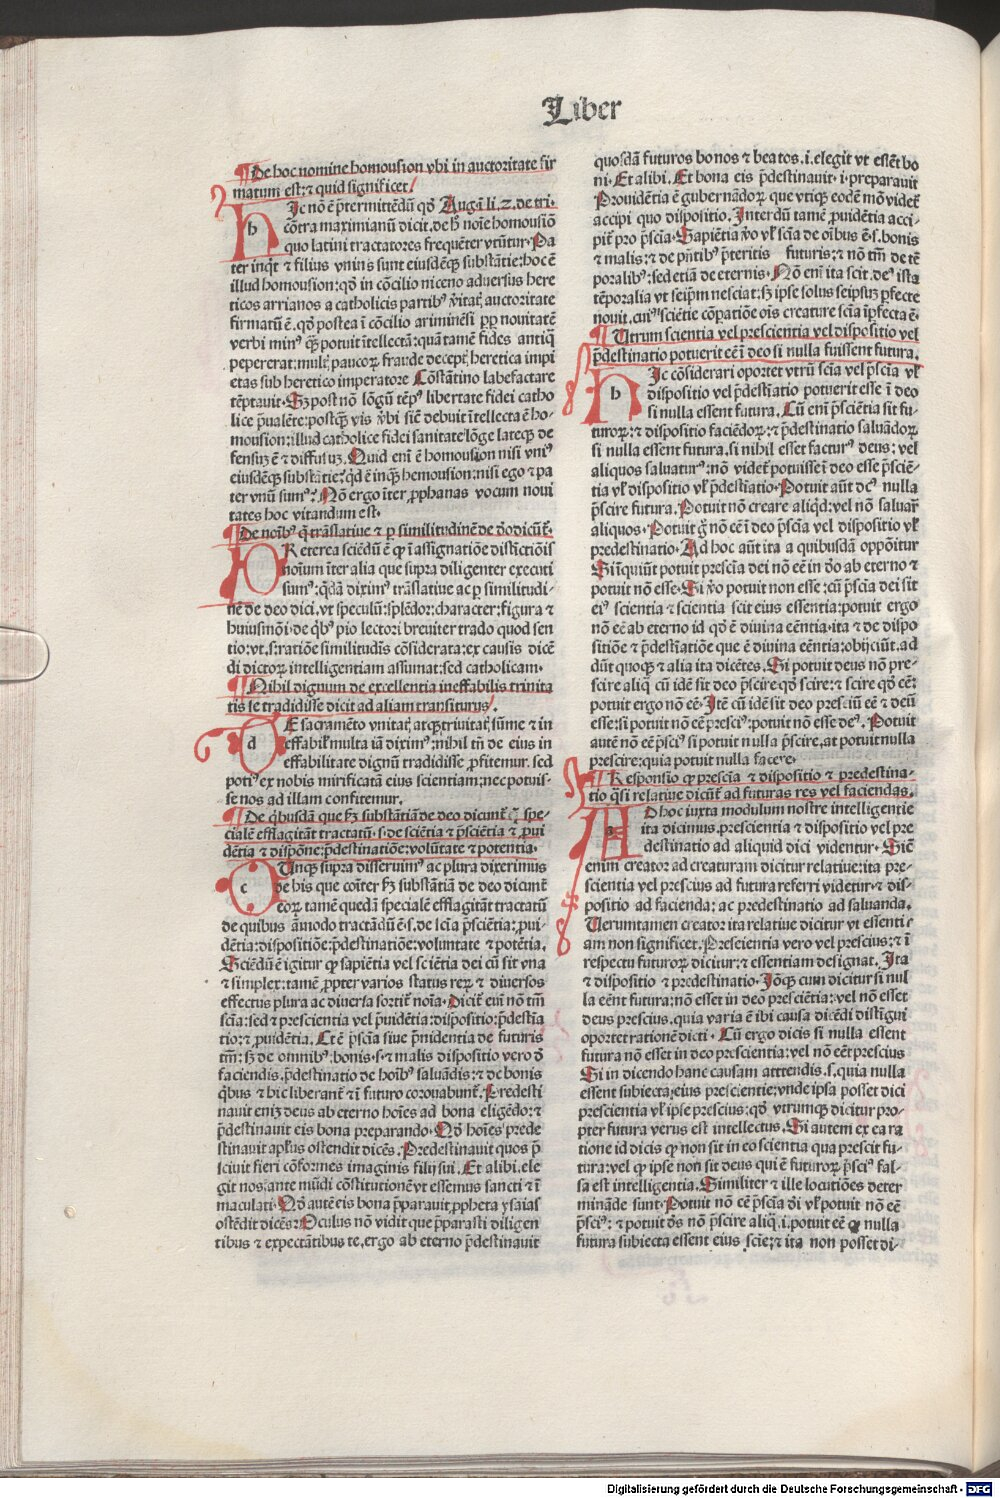 Liber
¶ De hoc nomine homousion vbi in auctoritate fir
matum est: ⁊ quid significet.
hIc nō ē p̄termittēdū qd̛ Augꝰ. li. 2. de tri.
cōtra maximianū dicit. de hͦ noīe homousiō
quo latini tractatores frequēter vtūtur. Pa
ter inqͥt ⁊ filius vnius sunt eiusdēqꝫ substātie: hoc ē
illud homousion: qd̛ in cōcilio niceno aduersus here
ticos arrianos a catholicis patribꝰ v̛itat᷑ auctoritate
firmatū ē. qd̛ postea ī cōcilio ariminēsi ꝓpͭ nouitatē
verbi minꝰ qꝫ potuit ītellectā: quā tamē fides antiq̄
pepererat: multꝭ paucoꝝ fraude deceptꝭ heretica impi
etas sub heretico imperatore Cōstātino labefactare
tēptauit. Sꝫ post nō lōgū tēpꝰ libertate fidei catho
lice p̄ualēte: postqꝫ vis v̛bi sic̄ debuit ītellecta ē ho-
mousion: illud catholice fidei sanitate lōge lateqꝫ de
fensuꝫ ē ⁊ diffusuꝫ. Quid enī ē homousion nisi vniꝰ
eiusdēqꝫ substātie: qͥd ē inqꝫ homousion: nisi ego ⁊ pa
ter vnū sumꝰ? Nō ergo īter ꝓphanas vocum noui
tates hoc vitandum est.
¶ De noībꝰ q̄ trāslatiue ⁊ ꝑ similitudinē de deo dicūt᷑.
PReterea sciēdū ē ꝙ ī assignatiōe distictiōis
noīum īter alia que supra diligenter executi
sumꝰ: qdā diximꝰ trāslatiue ac ꝑ similitudi-
nē de deo dici. vt speculū: splēdor: character: figura ⁊
huiusmōi. de qͥbꝰ pio lectori breuiter trado quod sen
tio: vt. s. ratiōe similitudīs cōsiderata: ex causis dicē
di dictoꝝ intelligentiam assumat: sed catholicam.
¶ Nihil dignum de excellentia ineffabilis trinita
tis se tradidisse dicit ad aliam transiturus.
dE sacramēto vnitatꝭ atqꝫ trinitatꝭ sūme ⁊ in
effabilꝭ multa iā diximꝰ: nihil tn̄ de eius in
effabilitate dignū tradidisse ꝓfitemur. sed
potiꝰ ex nobis mirificatā eius scientiam: nec potuis-
se nos ad illam confitemur.
¶ De qͥbusdā que sꝫ substātiā de deo dicunt᷑ q̄ spe-
cialē efflagitāt tractatū. s. de sciētia ⁊ p̄sciētia ⁊ ꝓui
dētia ⁊ dispōne: p̄destinatiōe: volūtate ⁊ potentia.
cUnqꝫ supra disseruimꝰ ac plura dixerimus
de his que coīter sꝫ substātiā de deo dicunt᷑
eoꝝ tamē quedā specialē efflagitāt tractatū
de quibus āmodo tractādū ē. s. de scīa p̄sciētia: ꝓui-
dētia: dispositiōe: p̄destinatiōe: voluntate ⁊ potētia.
Sciēdū ē igitur ꝙ sapiētia vel sciētia dei cū sit vna
⁊ simplex: tamē ꝓpter varios status reꝝ ⁊ diuersos
effectus plura ac diuersa sortit᷑ noīa. Dicit᷑ enī nō tm̄
scīa: sed ⁊ prescientia vel ꝓuidētia: dispositio: p̄destīa
tio: ⁊ ꝓuidētia. Et ē p̄scīa siue ꝓuidentia de futuris
tm̄: sꝫ de omnibꝰ. bonis. s. ⁊ malis dispositio vero d̛
faciendis. p̄destinatio de hoībꝰ saluādis: ⁊ de bonis
qͥbus ⁊ hic liberant᷑ ⁊ ī futuro coronabunt᷑. Predesti
nauit eniꝫ deus ab eterno hoīes ad bona eligēdo: ⁊
p̄destinauit eis bona preparando. Qd̛ hoīes prede
stinauit aplꝰus ostendit dicēs. Predestinauit quos p̄
sciuit fieri cōformes imaginis filij sui. Et alibi. ele
git nos ante mūdi cōstitutionē vt essemus sancti ⁊ ī
maculati. Qd̛ autē eis bona p̄parauit ꝓpheta ysaias
ostēdit dicēs: Oculus nō vidit que p̄parasti diligen
tibus ⁊ expectātibus te. ergo ab eterno p̄destinauit
quosdā futuros bonos ⁊ beatos. i. elegit vt essēt bo
ni. Et alibi. Et bona eis p̄destinauit. i. preparauit
Prouidētia ē gubernādoꝝ que vtiqꝫ eodē mō videt᷑
accipi quo dispositio. Interdū tamē ꝓuidētia acci-
pit᷑ pro p̄scīa. Sapiētia v̛o vꝉ scīa de oībus ē. s. bonis
⁊ malis: ⁊ de pn̄tibꝰ p̄teritis futuris: ⁊ nō tm̄ de tē
poralibꝰ: sed etiā de eternis. Nō enī ita scit deꝰ ista
tēporalia vt seipm̄ nesciat: sꝫ ipse solus seipsuꝫ ꝑfecte
nouit. cuiꝰ sciētie cōꝑatiōe oīs creature scīa īꝑfecta ē.
¶ Utrum scientia vel prescientia vel dispositio vel
p̄destinatio potuerit eē ī deo si nulla fuissent futura.
hIc cōsiderari oportet vtrū scīa vel p̄scīa vꝉ
dispositio vel p̄destīatio potuerit esse ī deo
si nulla essent futura. Cū enī p̄sciētia sit fu-
turoꝝ: ⁊ dispositio faciēdoꝝ: ⁊ p̄destinatio saluādoꝝ
si nulla essent futura. si nihil esset facturꝰ deus: vel
aliquos saluaturꝰ: nō videt᷑ potuisse ī deo esse p̄sciē-
tia vꝉ dispositio vꝉ p̄destīatio. Potuit aūt dꝰc nulla
p̄scire futura. Potuit nō creare aliqͥd: vel nō saluar᷑
aliquos. Potuit g̛ nō eē ī deo p̄scīa vel dispositio vꝉ
predestinatio. Ad hoc aūt ita a quibusdā oppōitur
Si inquiūt potuit prescīa dei nō eē in d̛o ab eterno ⁊
potuit nō esse. Si v̛o potuit non esse: cū p̄scīa dei sit
eiꝰ scientia ⁊ scientia scit eius essentia: potuit ergo
nō eē ab eterno id qd̛ ē diuina eēntia. ita ⁊ de dispo
sitiōe ⁊ p̄destīatiōe que ē diuina eēntia: obijciūt. ad
dūt quoqꝫ ⁊ alia ita dicētes. Si potuit deus nō pre-
scire aliqͣ cū idē sit deo p̄scire qd̛ scire: ⁊ scire qd̛ eē:
potuit ergo nō eē. Itē cū idē sit deo presciū eē ⁊ deū
esse: si potuit nō eē p̄sciꝰ: potuit nō esse deꝰ. Potuit
autē nō eē p̄sciꝰ si potuit nulla p̄scire. at potuit nulla
prescire: quia potuit nulla facere.
¶ Responsio ꝙ prescīa ⁊ dispositio ⁊ predestina-
tio qͣsi relatiue dicūt᷑ ad futuras res vel faciendas.
aD hoc iuxta modulum nostre intelligentie
ita dicimus. prescientia ⁊ dispositio vel pre
destinatio ad aliquid dici videntur. Sic̄
enim creator ad creaturam dicitur relatiue: ita pre-
scientia vel prescius ad futura referri videtur. ⁊ dis-
positio ad facienda: ac predestinatio ad saluanda.
Uerumtamen creator ita relatiue dicitur vt essenti
am non significet. Prescientia vero vel prescius: ⁊ ī
respectu futuroꝝ dicitur: ⁊ essentiam designat. Ita
⁊ dispositio ⁊ predestinatio. Iōqꝫ cum dicitur si nul
la eēnt futura: nō esset in deo presciētia: vel nō esset
deus prescius. quia varia ē ibi causa dicēdi distīgui
oportet rationē dicti. Cū ergo dicis si nulla essent
futura nō esset in deo prescientia: vel nō eēt prescius
Si in dicendo hanc causam attendis. s. quia nulla
essent subiecta eius prescientie: vnde ipsa posset dici
prescientia vꝉ ipse prescius: qd̛ vtrumqꝫ dicitur pro-
pter futura verus est intellectus. Si autem ex ea ra
tione id dicis ꝙ non sit in eo scientia qua prescit fu-
tura: vel ꝙ ipse non sit deus qui ē futuroꝝ p̄sciꝰ fal-
sa est intelligentia. Similiter ⁊ ille locutiōes deter
mināde sunt. Potuit non eē p̄scīa d̛i vꝉ potuit nō eē
p̄sciꝰ: ⁊ potuit d̛s nō p̄scire aliqͣ. i. potuit eē ꝙ nulla
futura subiecta essent eius scīe: ⁊ ita non posset di-
Digitalisierung gefördert durch die Deutsche Forschungsgemeinschaft - DFG